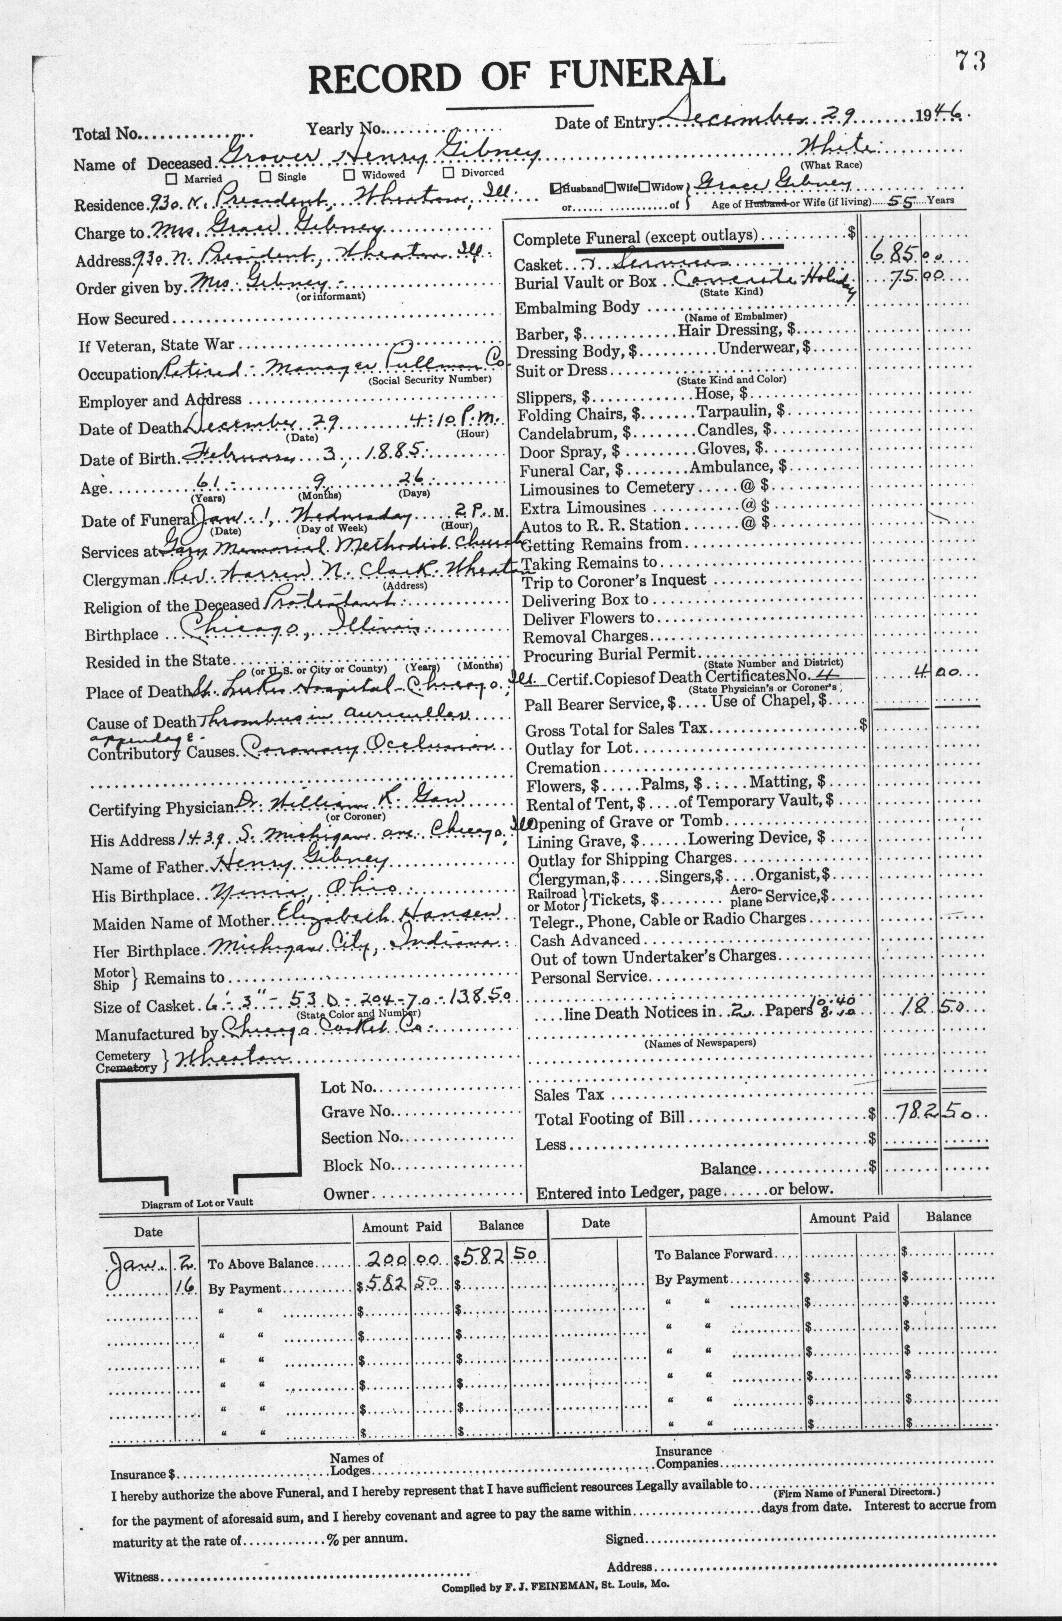 73
RECORD OF FUNERAL
Total No. Yearly No. Date of Entry December 29 1946
Name of Deceased Grover Henry Gibney White
(What Race)
Married Single Widowed Divorced
Residence 930 N. President, Wheaton, Ill. Husband Wife Widow or of } Grace Gibney
Age of Husband or Wife (if living) 55 Years
Charge to Mrs. Grace Gibney
Address 930 N. President, Wheaton Ill.
Order given by Mrs Gibney
(or informant)
How Secured
If Veteran, State War
Occupation Retired - Manager Pullman Co.
(Social Security Number)
Employer and Address
Date of Death December 29 4:10 P.M.
(Date) (Hour)
Date of Birth February 3, 1885
Age 61 9 26
(Years) (Months) (Days)
Date of Funeral Jan. 1, Wednesday 2 P. M.
(Date) (Day of Week) (Hour)
Services at Gary Memorial Methodist Church
Clergyman Rev Warren N. Clark Wheaton
(Address)
Religion of the Deceased Protestant
Birthplace Chicago, Illinois
Resided in the State
(or U. S. or City or County) (Years) (Months)
Place of Death St. Lukes Hospital - Chicago, Ill.
Cause of Death Thrombus in auricular
appendage
Contributory Causes Coronary Occlusion
Certifying Physician Dr. William K.
(or Coroner)
His Address 1439 S. Michigan ave Chicago, Ill
Name of Father Henry Gibney
His Birthplace Ohio
Maiden Name of Mother Elizabeth Hansen
Her Birthplace Michigan City, Indiana
Motor Ship } Remains to
Size of Casket 6'-3" - 53 D - 204-70 - 138.50
(State Color and Number)
Manufactured by Chicago Casket Co.
Cemetery Crematory } Wheaton
Lot No.
Grave No.
Section No.
Block No.
Owner
Diagram of Lot or Vault
Complete Funeral (except outlays) $
Casket & Services 685 00
Burial Vault or Box Concrete Holiday 75 00
(State Kind)
Embalming Body
(Name of Embalmer)
Barber, $ Hair Dressing, $
Dressing Body, $ Underwear, $
Suit or Dress
(State Kind and Color)
Slippers, $ Hose, $
Folding Chairs, $ Tarpaulin, $
Candelabrum, $ Candles, $
Door Spray, $ Gloves, $
Funeral Car, $ Ambulance, $
Limousines to Cemetery @ $
Extra Limousines @ $
Autos to R. R. Station @ $
Getting Remains from
Taking Remains to
Trip to Coroner's Inquest
Delivering Box to
Deliver Flowers to
Removal Charges
Procuring Burial Permit
(State Number and District)
Certif. Copies of Death Certificates No. 4 4 00
(State Physician's or Coroner's)
Pall Bearer Service, $ Use of Chapel, $
Gross Total for Sales Tax $
Outlay for Lot
Cremation
Flowers, $ Palms, $ Matting, $
Rental of Tent, $ of Temporary Vault, $
Opening of Grave or Tomb
Lining Grave, $ Lowering Device, $
Outlay for Shipping Charges
Clergyman, $ Singers, $ Organist, $
Railroad or Motor } Tickets, $ Aeroplane Service, $
Telegr., Phone, Cable or Radio Charges
Cash Advanced
Out of town Undertaker's Charges
Personal Service
line Death Notices in 2 Papers 10.40 8.10 18 50
(Names of Newspapers)
Sales Tax
Total Footing of Bill $ 782 50
Less $
Balance $
Entered into Ledger, page or below.
Date Amount Paid Balance Date Amount Paid Balance
Jan. 2 To Above Balance 200 00 $582 50 To Balance Forward $
16 By Payment $582 50 $ By Payment $ $
" " $ $ " " $ $
" " $ $ " " $ $
" " $ $ " " $ $
" " $ $ " " $ $
" " $ $ " " $ $
" " $ $ " " $ $
Insurance $ Names of Lodges Insurance Companies
I hereby authorize the above Funeral, and I hereby represent that I have sufficient resources Legally available to
(Firm Name of Funeral Directors.)
for the payment of aforesaid sum, and I hereby covenant and agree to pay the same within days from date. Interest to accrue from
maturity at the rate of % per annum. Signed
Witness Address
Compiled by F. J. FEINEMAN, St. Louis, Mo.